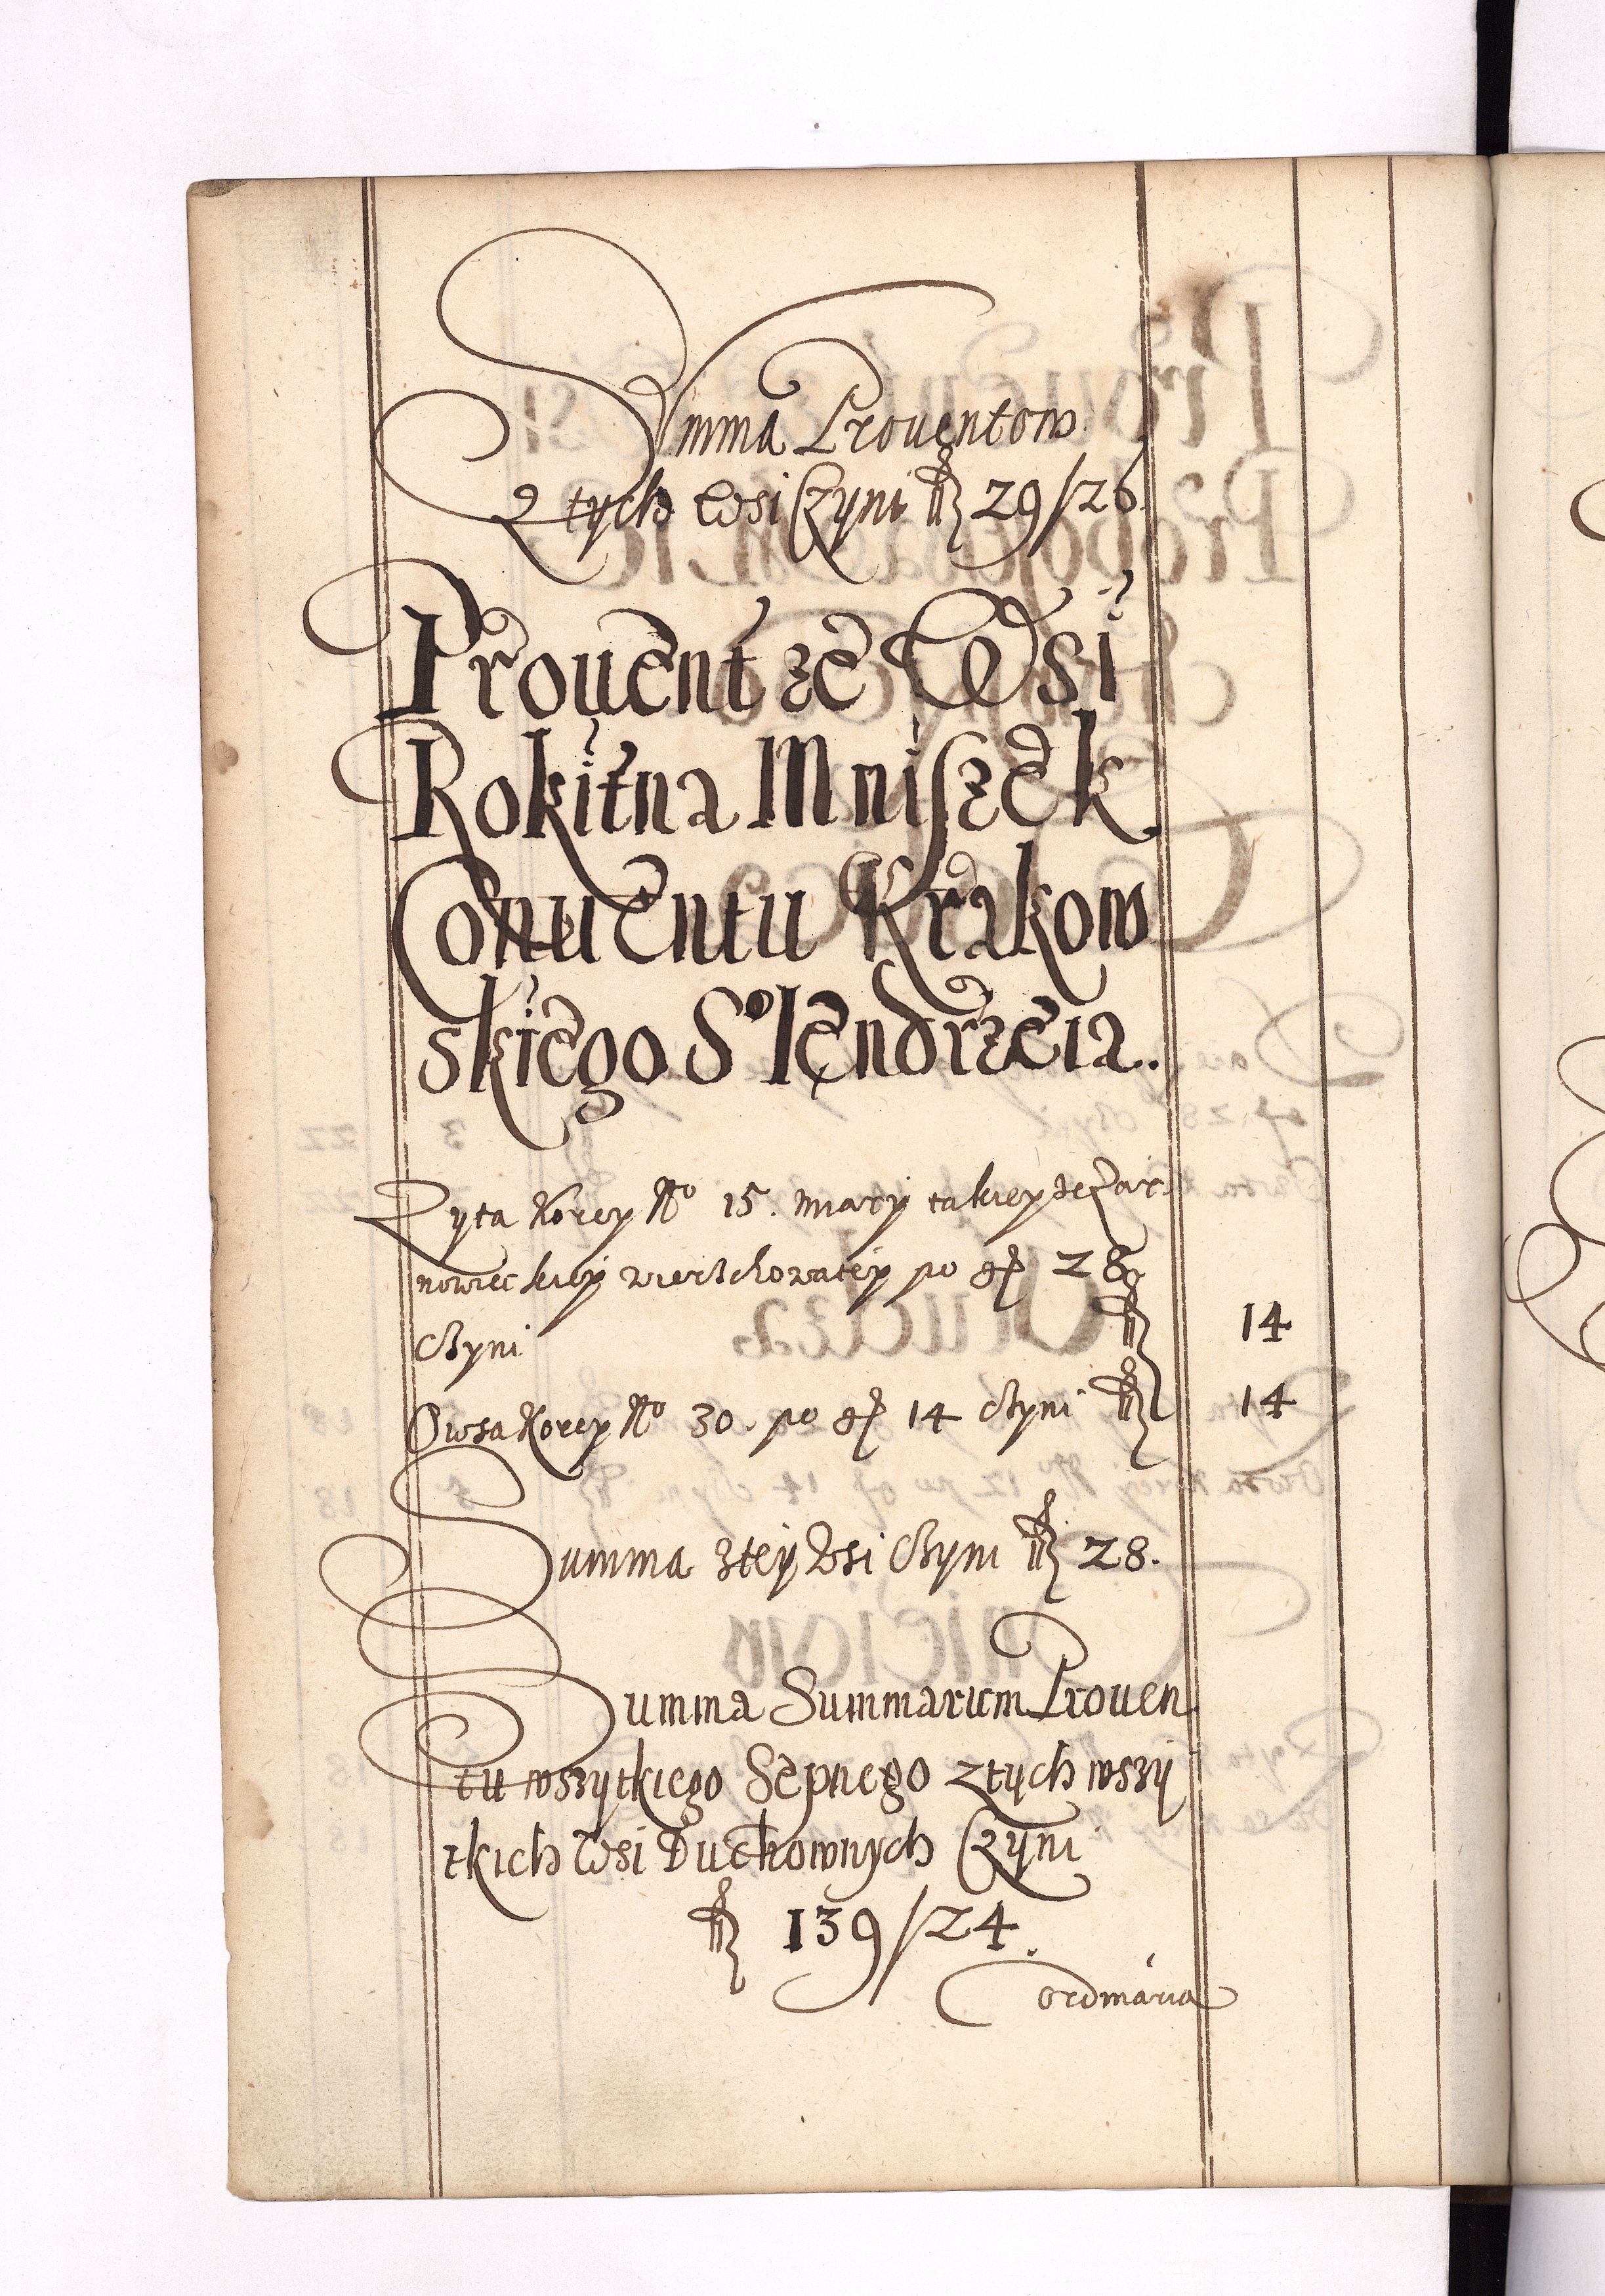 Summa Prouentow
Z tych Wsi Czyni fl 29/26
Prouent ze Wsi
Rokitna Mniszek
Conuentu Krakow
skiego So Iendrzeia.
Zyta Korcy No 15. miary takiey ze Zar
nowieckiey wierzchowatey po gr 28
Czyni fl 14
Owsa Korcy No 30. po gr 14 Czyni fl 14
Summa z tey Wsi Czyni fl 28.
Summa Summarum Prouen
tu wszytkiego Sepnego z tych wszy
tkich Wsi Duchownych Czyni
fl 139/24.
ordinaria